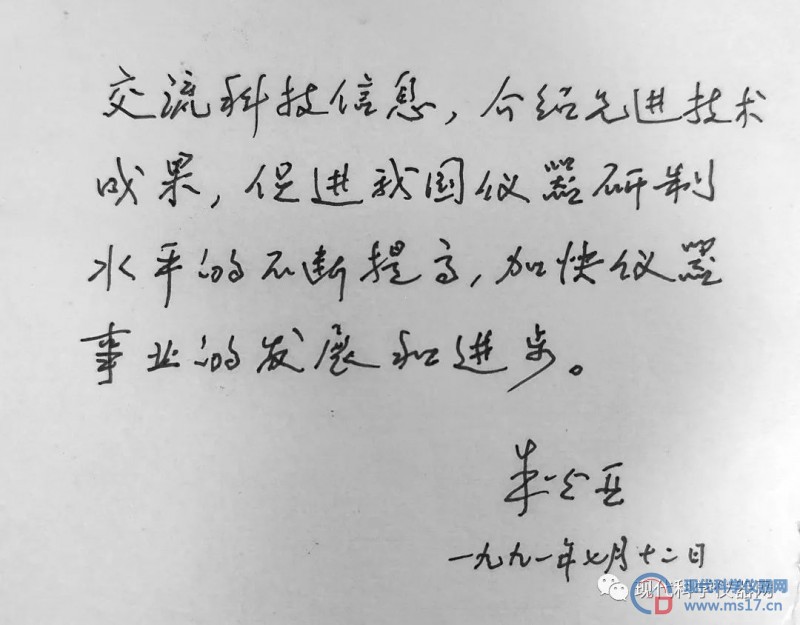 交流科技信息，介绍先进技术
成果，促进我国仪器研制
水平的不断提高，加快仪器
事业的发展和进步。
朱
一九九一年七月十二日
现代科学仪器网
现代科学仪器网
www.ms17.cn